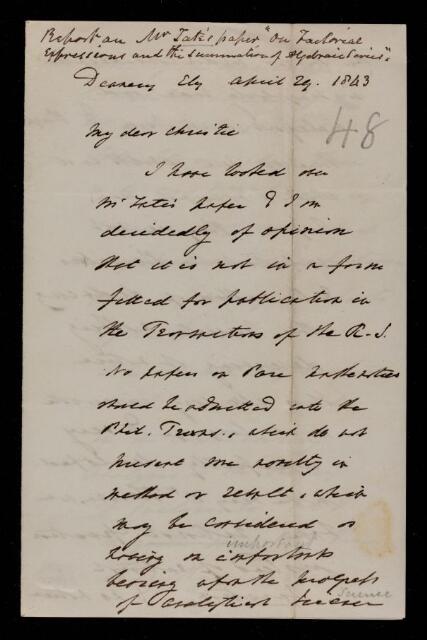 Report on Mr Tate's paper "On Factorial
Expressions and the Summation of Algebraic Series".
Deanery Ely April 29. 1843
48
My dear Christie
I have looked over
Mr Tate's paper & I am
decidedly of opinion
that it is not in a form
fitted for publication in
the Transactions of the R. S.
No papers on Pure Mathematics
should be admitted into the
Phil. Trans., which do not
present some novelty in
method or result, which
may be considered as
important
having an important
bearing upon the progress
of analytical science
Science